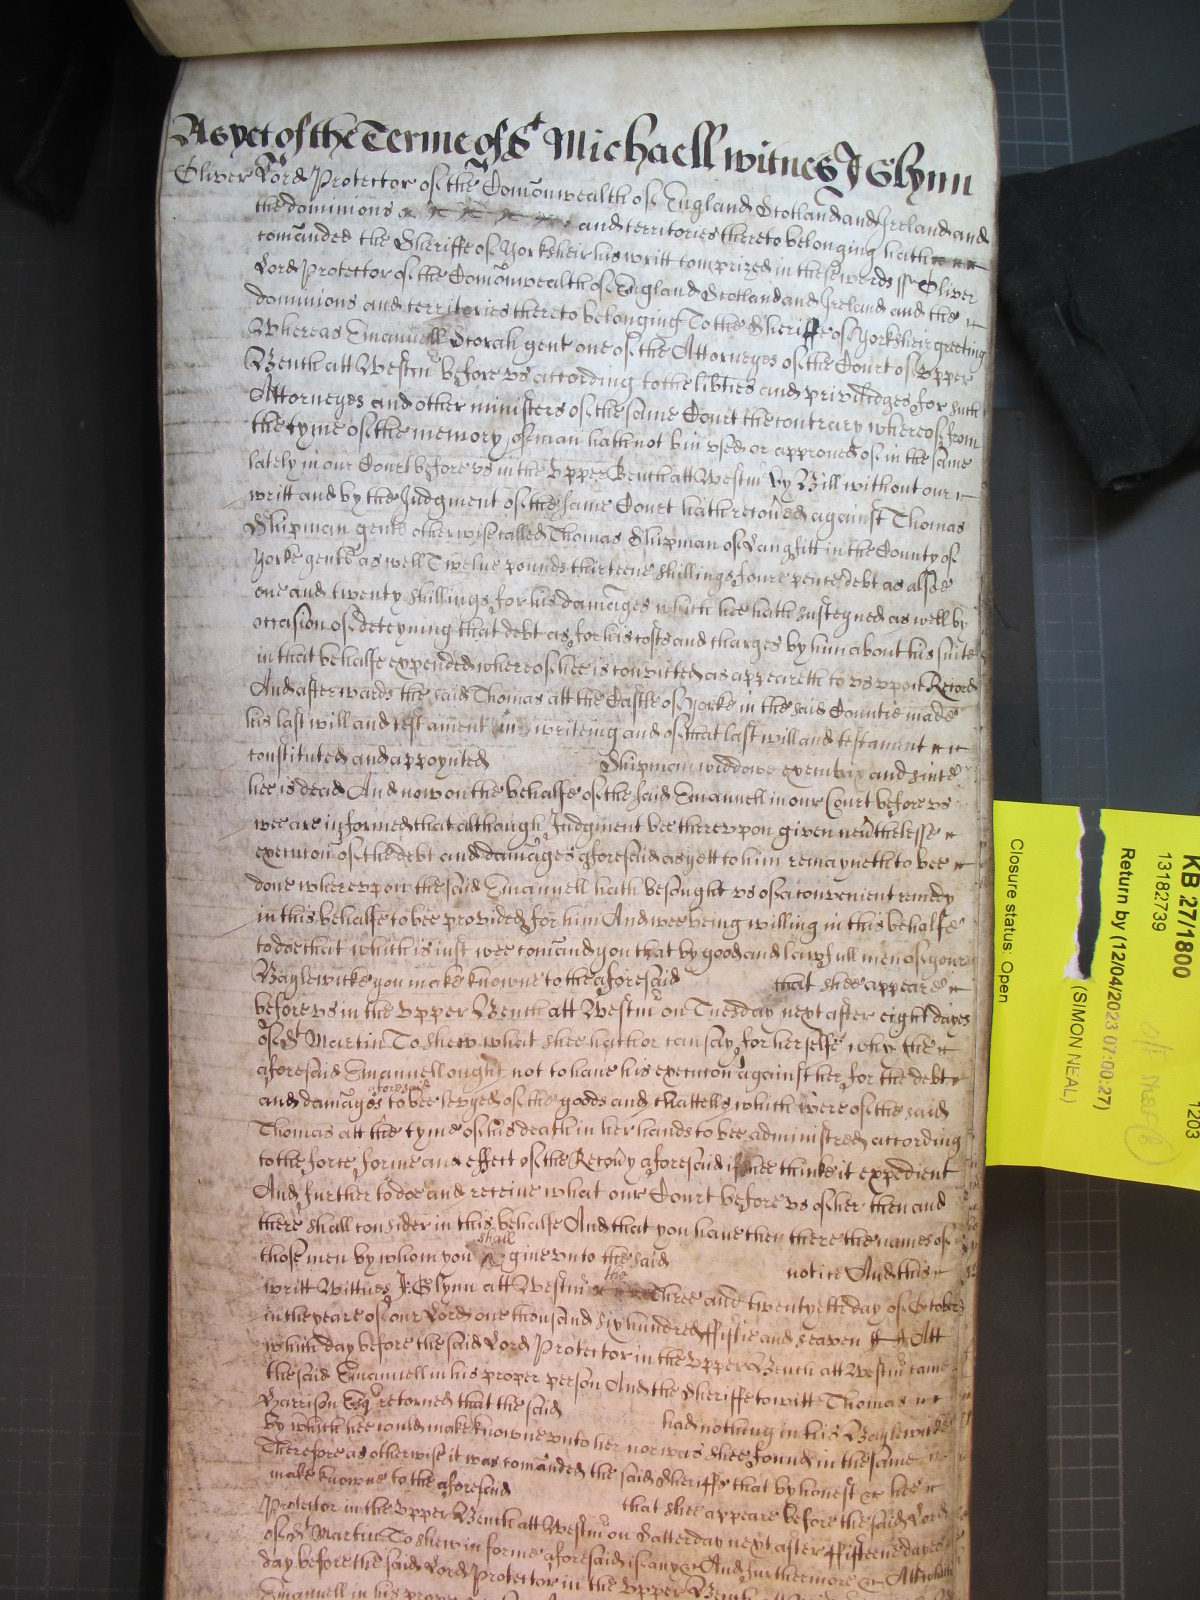 As yet of the Terme of St Michaell witnes J Glynn
Oliver Lord Protector of the Comonwealth of England Scotland and Ireland and
the dominions and territories thereto belonging hath
comanded the Sheriffe of Yorksheir his writt comprized in these words ss Oliver
Lord Protector of the Comonwealth of England Scotland and Ireland and the
dominions and territories thereto belonging To the Sheriffe of Yorksheir greeting
Whereas Emanuell gent one of the Attorneyes of the Court of Upper
Bench att Westm before us according to the libties and priviledges for such
Attorneyes and other ministers of the same Court the contrary whereof from
the tyme of the memory of man hath not bin used or approved of in the same
lately in our Court before us in the Upper Bench att Westm by Bill without our
writt and by the Judgment of the same Court hath recoued against Thomas
Shipman gent otherwise called Thomas Shipman of in the County of
Yorke gent as well Twelue pounds thirteene shillings foure pence debt as alsoe
one and twenty shillings for his damages which hee hath susteyned as well by
occasion of deteyning that debt as for his costs and charges by him about his suite
in that behalfe expended whereof hee is convicted as appeareth to us upon Record
And afterwards the said Thomas att the Castle of Yorke in the said Countie made
his last will and testament in writeing and of that last will and testament
constituted and appoynted Shipman widdowe executrix and since
hee is dead And now on the behalfe of the said Emanuell in our Court before us
wee are informed that although Judgment bee thereupon given neuthelesse
execucion of the debt and damages aforesaid as yett to him remayneth to bee
done whereupon the said Emanuell hath besought us of a convenient remedy
in this behalfe to bee provided for him And wee being willing in this behalfe
to doe that which is just wee comand you that by good and lawfull men of your
Baylewicke you make knowne to the aforesaid that shee appeare
before us in the Upper Bench att Westm on Tuesday next after eight dayes
of St Martin To shew what shee hath or can say for herselfe why the
aforesaid Emanuell ought not to have his execucon against her for the debt
and damages aforesaid to bee levyed of the goods and chattells which were of the said
Thomas att the tyme of his death in her hands to bee administred according
to the force forme and effect of the Recovy aforesaid if shee thinke it expedient
And further to doe and receive what our Court before us of her then and
there shall consider in this behalfe And that you have then there the names of
those men by whom you shall give unto the said notice And this
writt Wittnes J Glynn att Westm the Three and twentyeth day of October
in the yeare of our Lord one thousand six hundred ffiftie and seaven Att
which day before the said Lord Protector in the Upper Bench att Westm came
the said Emanuell in his proper person And the Sheriffe to witt Thomas
Harrison Esq returned that the said had nothing in his Baylewicke
By which hee could make knowne unto her nor was shee found in the same
Therefore as otherwise it was comanded the said Sheriffe that by honest &c hee
make knowne to the aforesaid that shee appeare before the said Lord
Protector in the Upper Bench att Westm on Satterday next after ffifteene dayes
of St Martin To shew in forme aforesaid if any &c And furthermore &c Att which
day before the said Lord Protector in the Upper Bench att
Emanuell in his proper
KB 27/1800
13182739
Return by (12/04/2023 07:00:27)
(SIMON NEAL)
Closure status: Open
1203